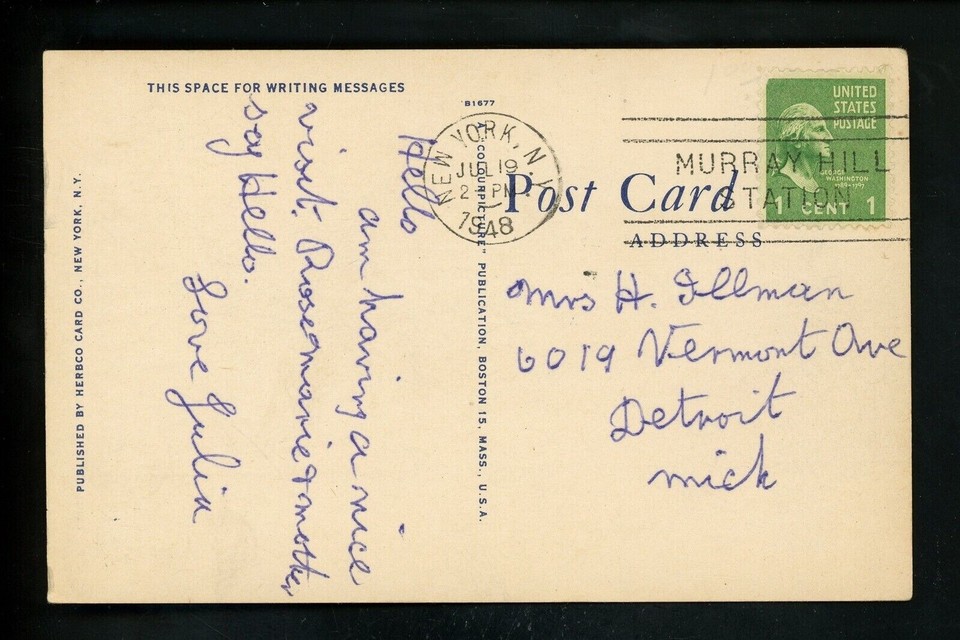 THIS SPACE FOR WRITING MESSAGES
Hello
am having a nice
visit. Rosemarie & mother
say Hello.
Love Julia
PUBLISHED BY HERBCO CARD CO., NEW YORK, N.Y.
B1677
"COLOURPICTURE" PUBLICATION, BOSTON 15, MASS., U.S.A.
NEW YORK, N.Y.
JUL 19
2 - PM
1948
MURRAY HILL
STATION
UNITED
STATES
POSTAGE
GEORGE
WASHINGTON
1789-1797
1 CENT 1
Post Card
ADDRESS
Mrs H. Illman
6019 Vermont Ave
Detroit
Mich